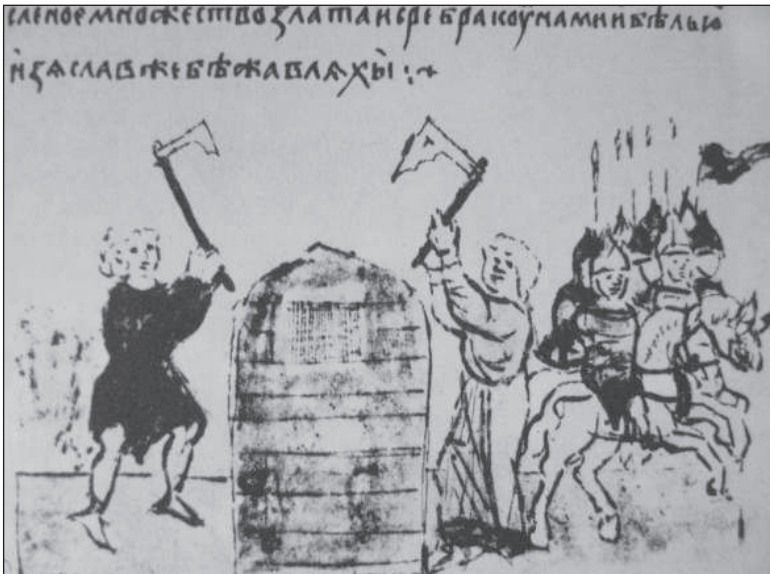 сленоемножествоꙁлатаисребракоунамиибѣлью
иꙁѧславжебѣжавлѧхы :+